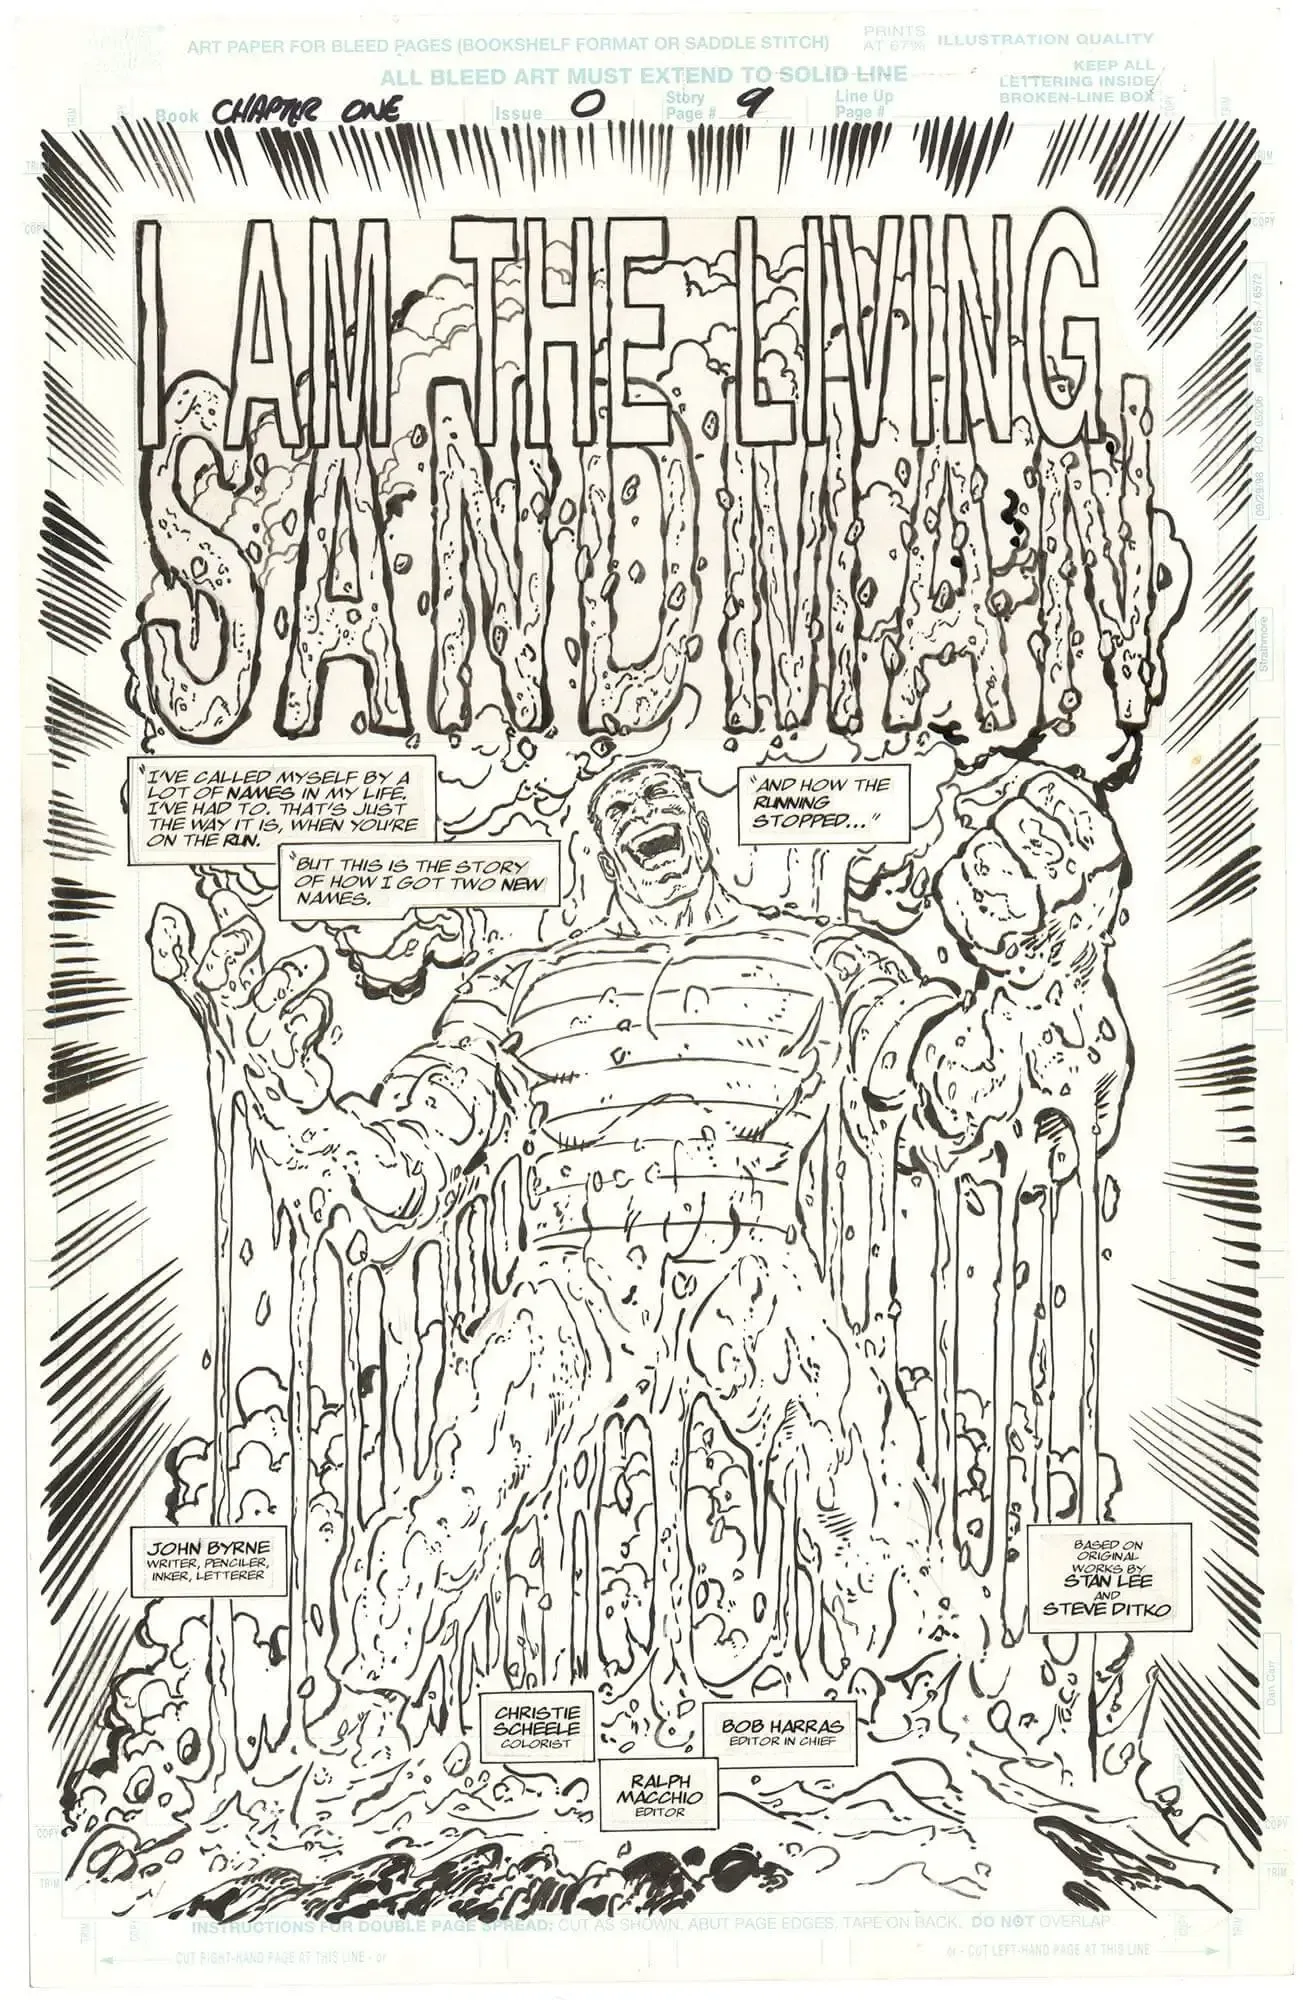 ART PAPER FOR BLEED PAGES (BOOKSHELF FORMAT OR SADDLE STITCH)
PRINTS
AT 67%
ILLUSTRATION QUALITY
ALL BLEED ART MUST EXTEND TO SOLID LINE
KEEP ALL
LETTERING INSIDE
BROKEN-LINE BOX
Book CHAPTER ONE Issue 0 Story Page # 9 Line Up Page #
TRIM
COPY
I AM THE LIVING
SANDMAN
"I'VE CALLED MYSELF BY A
LOT OF NAMES IN MY LIFE.
I'VE HAD TO. THAT'S JUST
THE WAY IT IS, WHEN YOU'RE
ON THE RUN.
"BUT THIS IS THE STORY
OF HOW I GOT TWO NEW
NAMES.
"AND HOW THE
RUNNING
STOPPED..."
09/29/98
Strathmore
JOHN BYRNE
WRITER, PENCILER,
INKER, LETTERER
BASED ON
ORIGINAL
WORKS BY
STAN LEE
AND
STEVE DITKO
Dan Carr
CHRISTIE
SCHEELE
COLORIST
BOB HARRAS
EDITOR IN CHIEF
RALPH
MACCHIO
EDITOR
COPY
COPY
TRIM
TRIM
INSTRUCTIONS FOR DOUBLE PAGE SPREAD: CUT AS SHOWN, ABUT PAGE EDGES, TAPE ON BACK. DO NOT OVERLAP
CUT RIGHT-HAND PAGE AT THIS LINE - or
or - CUT LEFT-HAND PAGE AT THIS LINE